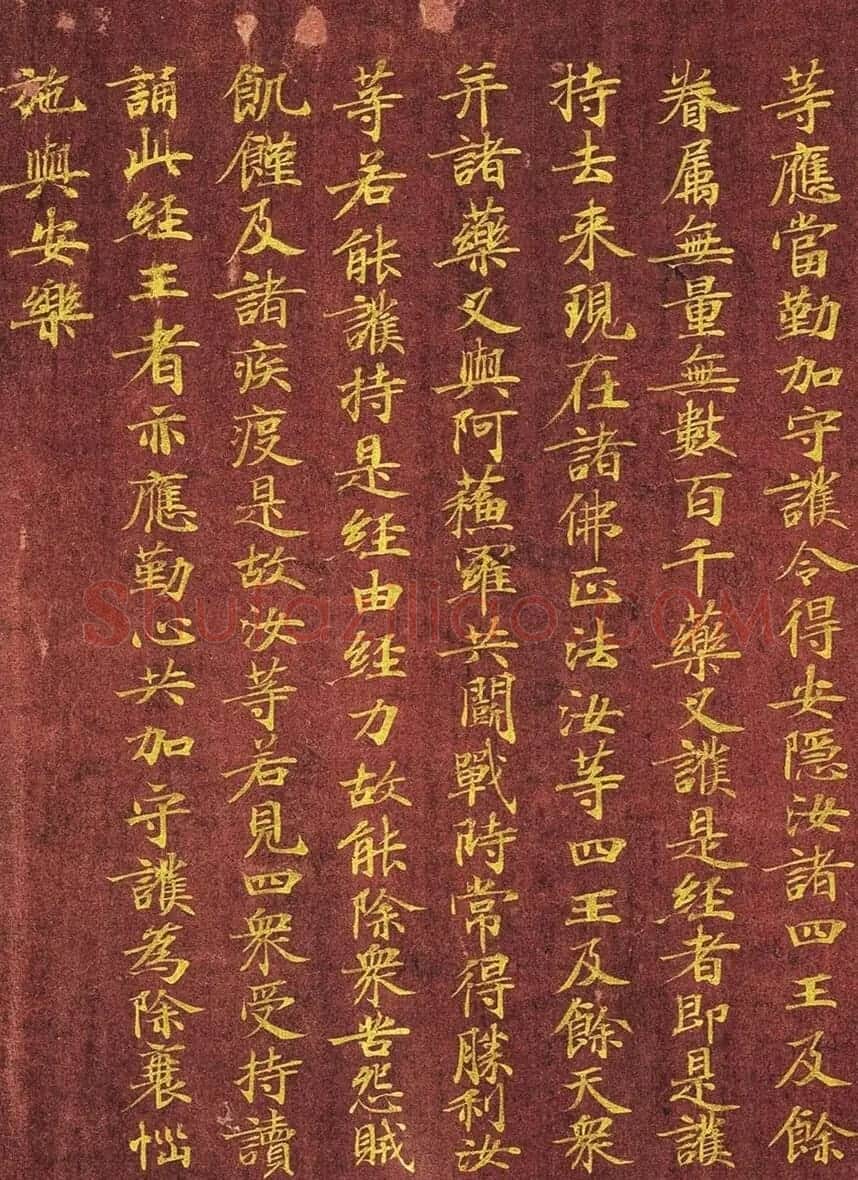 等應當勤加守護令得安隱汝諸四王及餘
眷属無量無數百千藥叉護是經者即是護
持去来現在諸佛正法汝等四王及餘天衆
并諸藥叉與阿蘓羅共鬪戰時常得勝利汝
等若能護持是經由經力故能除衆苦怨賊
飢饉及諸疾疫是故汝等若見四衆受持讀
誦此經王者亦應勤心共加守護為除襄惱
施與安樂
Shufaziliao.COM